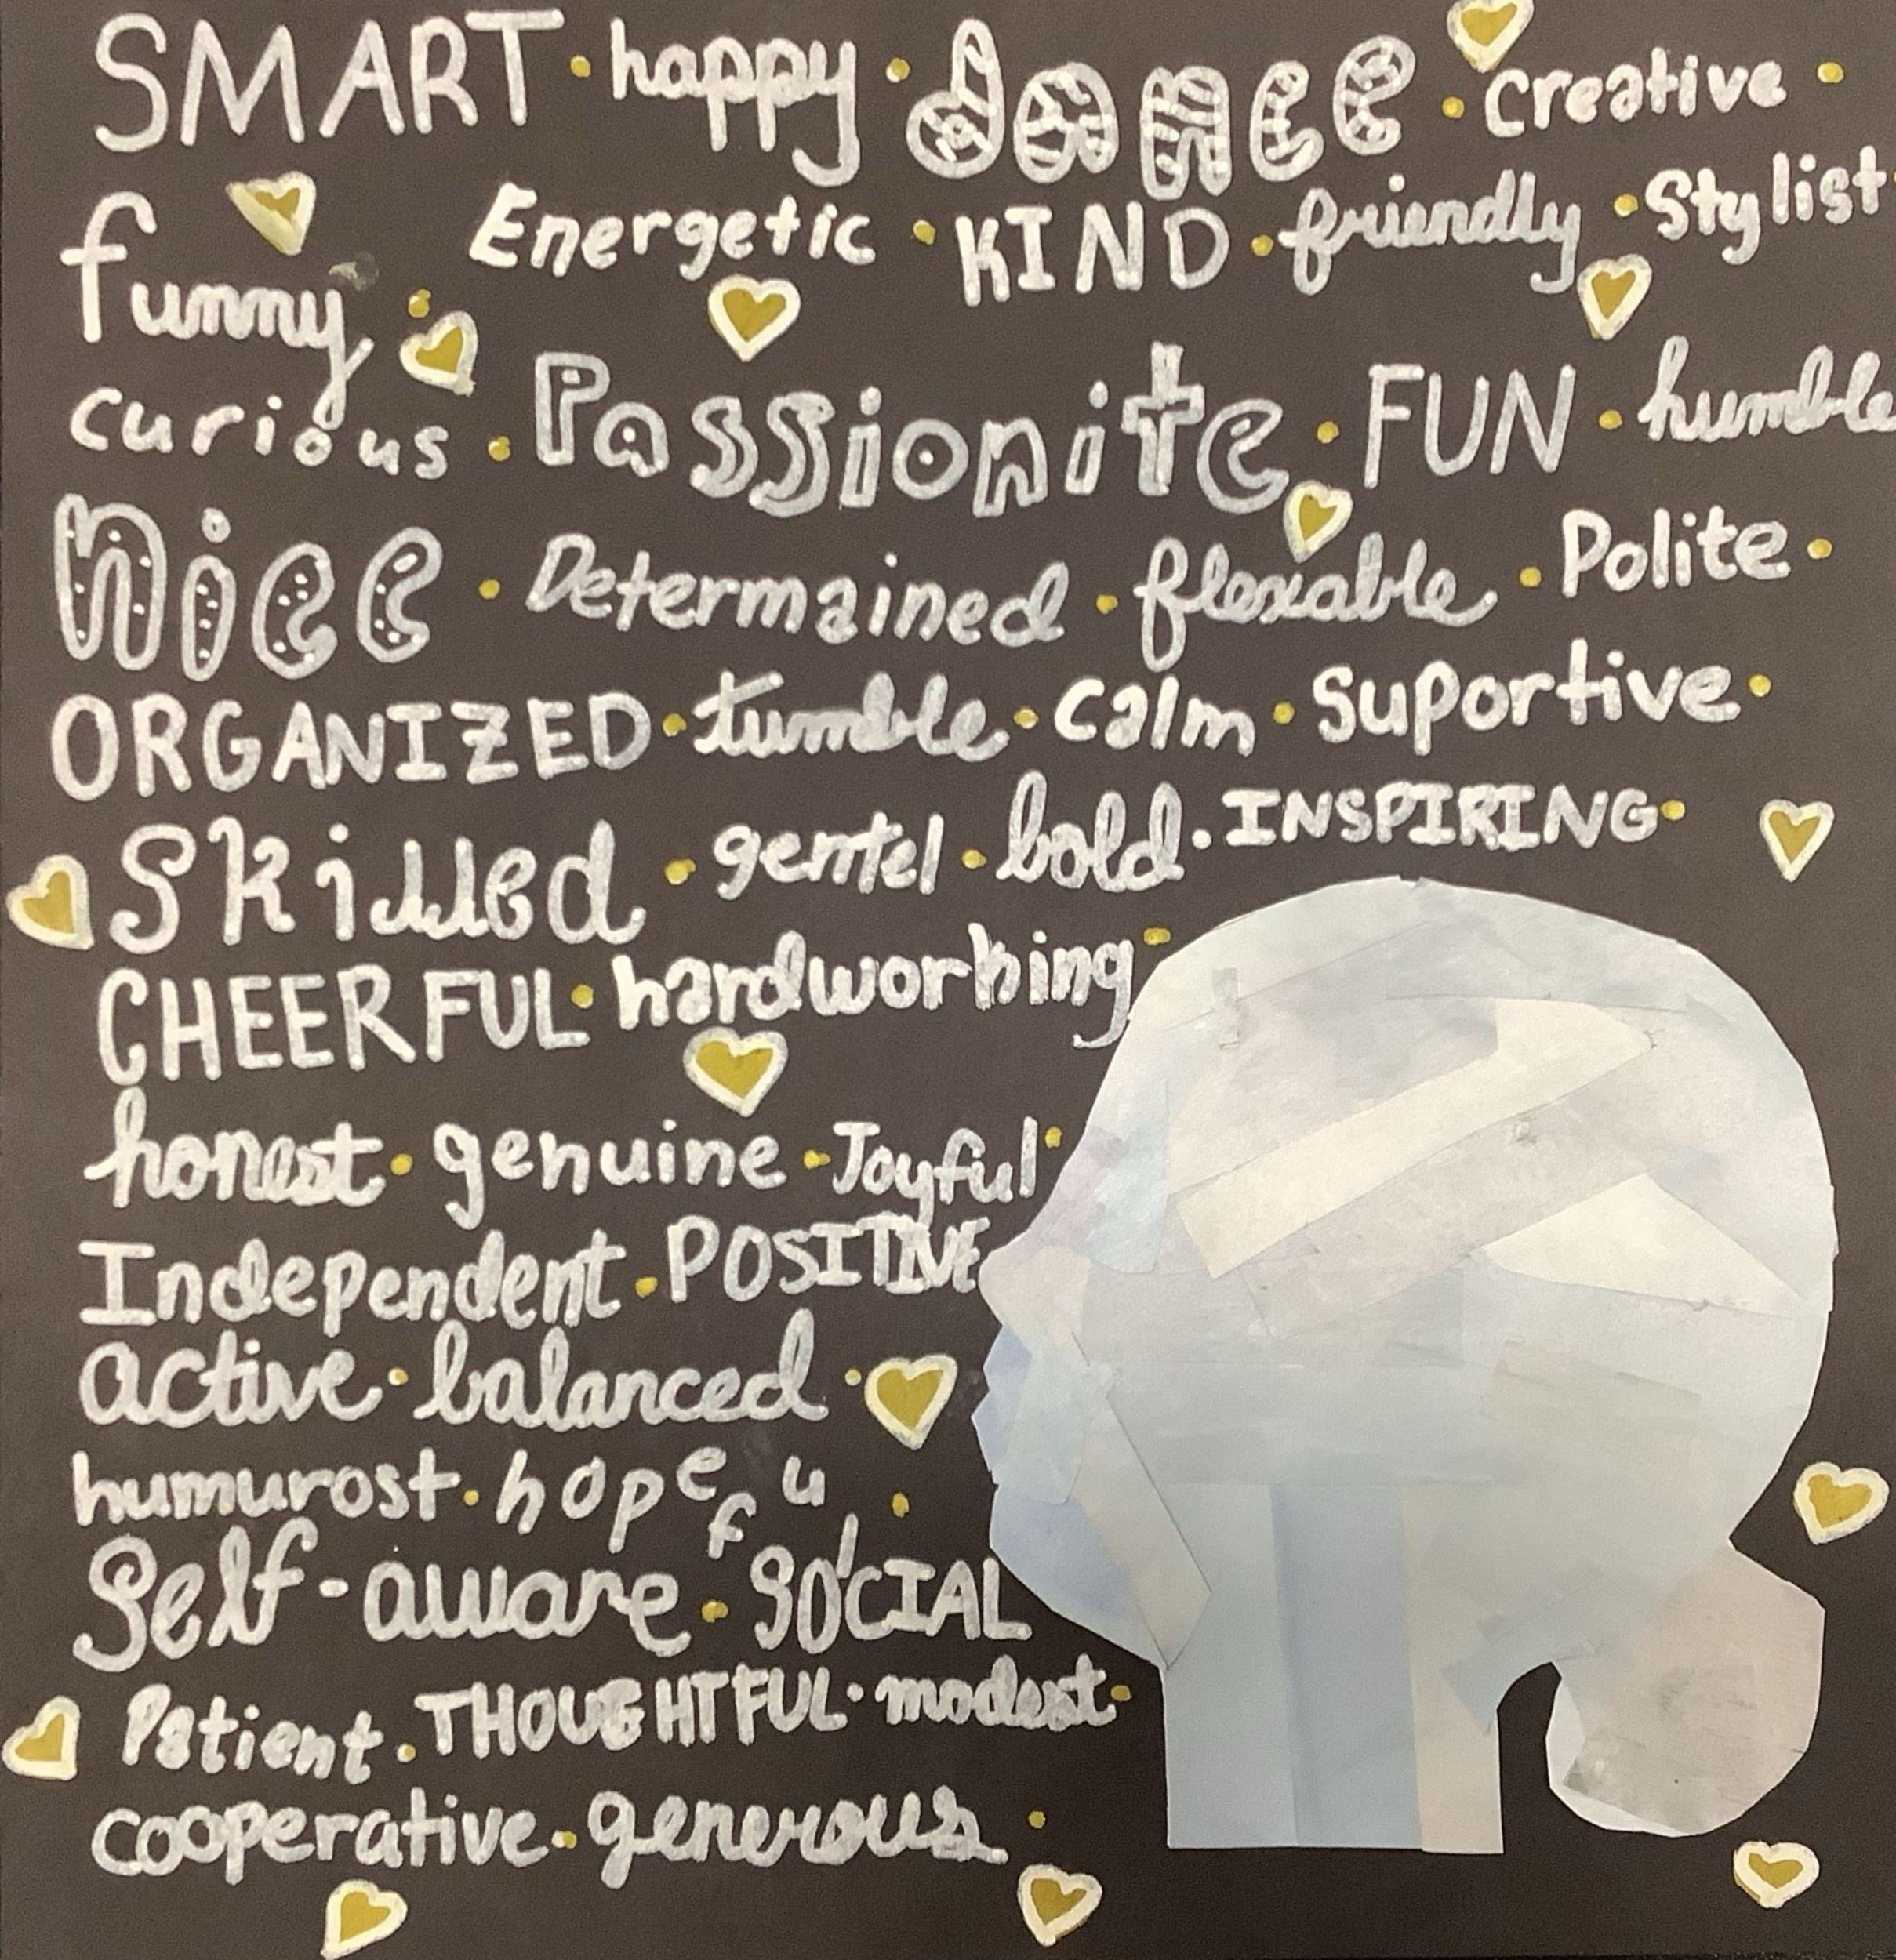 SMART · happy · dance · creative ·
funny · Energetic · KIND · friendly · Stylist
curious · Passionite · FUN · humble
Nice · Determained · flexable · Polite ·
ORGANIZED · tumble · calm · suportive ·
Skilled · gentel · bold · INSPIRING ·
CHEERFUL · hardworking ·
honest · genuine · Joyful ·
Independent · POSITIVE
active · balanced ·
humurost · hopeful ·
Self-aware · SOCIAL
Patient · THOUGHTFUL · modest ·
cooperative · generous ·